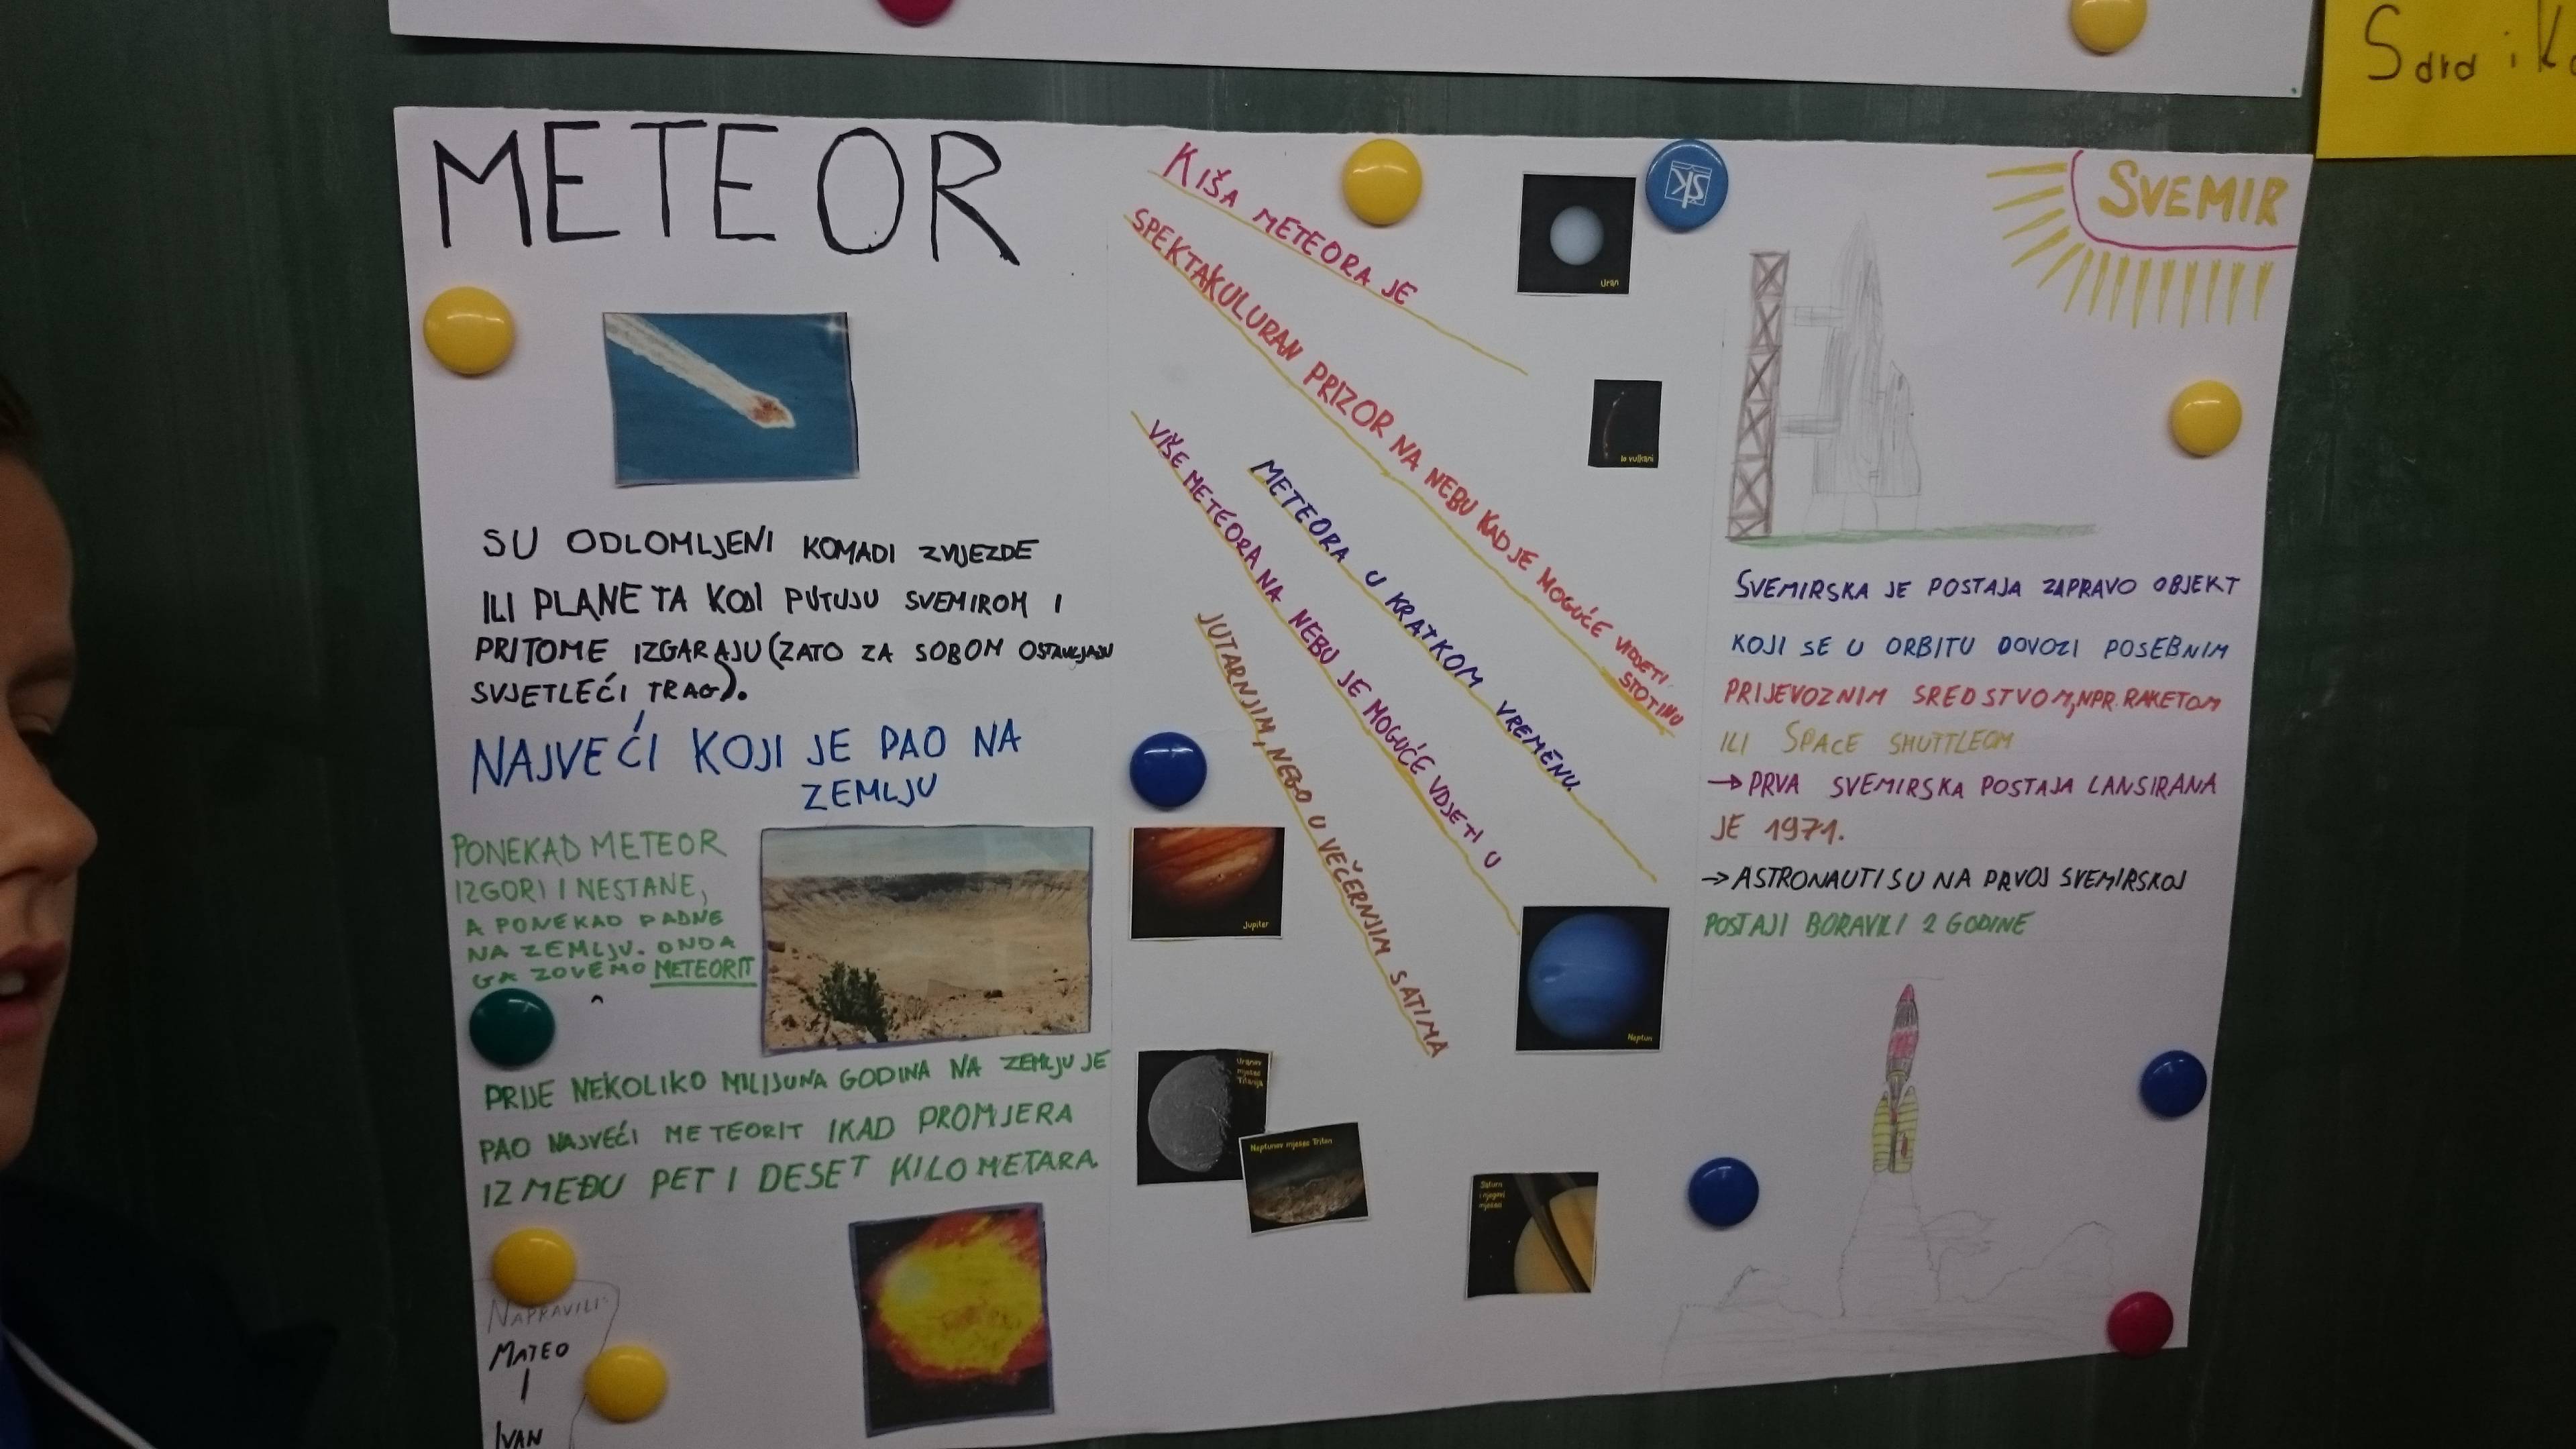 METEOR
SU ODLOMLJENI KOMADI ZVIJEZDE
ILI PLANETA KOJI PUTUJU SVEMIROM I
PRITOME IZGARAJU (ZATO ZA SOBOM OSTAVLJAJU
SVJETLEĆI TRAG).
NAJVEĆI KOJI JE PAO NA
ZEMLJU
PONEKAD METEOR
IZGORI I NESTANE,
A PONEKAD PADNE
NA ZEMLJU. ONDA
GA ZOVEMO METEORIT
PRIJE NEKOLIKO MILIJUNA GODINA NA ZEMLJU JE
PAO NAJVEĆI METEORIT IKAD PROMJERA
IZMEĐU PET I DESET KILOMETARA
NAPRAVILI:
MATEO
I
IVAN
KIŠA METEORA JE
SPEKTAKULURAN PRIZOR NA NEBU KAD JE MOGUĆE VIDJETI
STOTINU
METEORA U KRATKOM VREMENU.
VIŠE METEORA NA NEBU JE MOGUĆE VDJETI U
JUTARNJIM, NEGO U VEČERNJIM SATIMA
Uran
Io vulkani
Jupiter
Neptun
Uranov
mjesec
Titanija
Neptunov mjesec Triton
Saturn
i njegovi
mjeseci
SVEMIR
SVEMIRSKA JE POSTAJA ZAPRAVO OBJEKT
KOJI SE U ORBITU DOVOZI POSEBNIM
PRIJEVOZNIM SREDSTVOM, NPR. RAKETOM
ILI SPACE SHUTTLEOM
→ PRVA SVEMIRSKA POSTAJA LANSIRANA
JE 1971.
→ ASTRONAUTI SU NA PRVOJ SVEMIRSKOJ
POSTAJI BORAVILI 2 GODINE
ŠK
Sara i